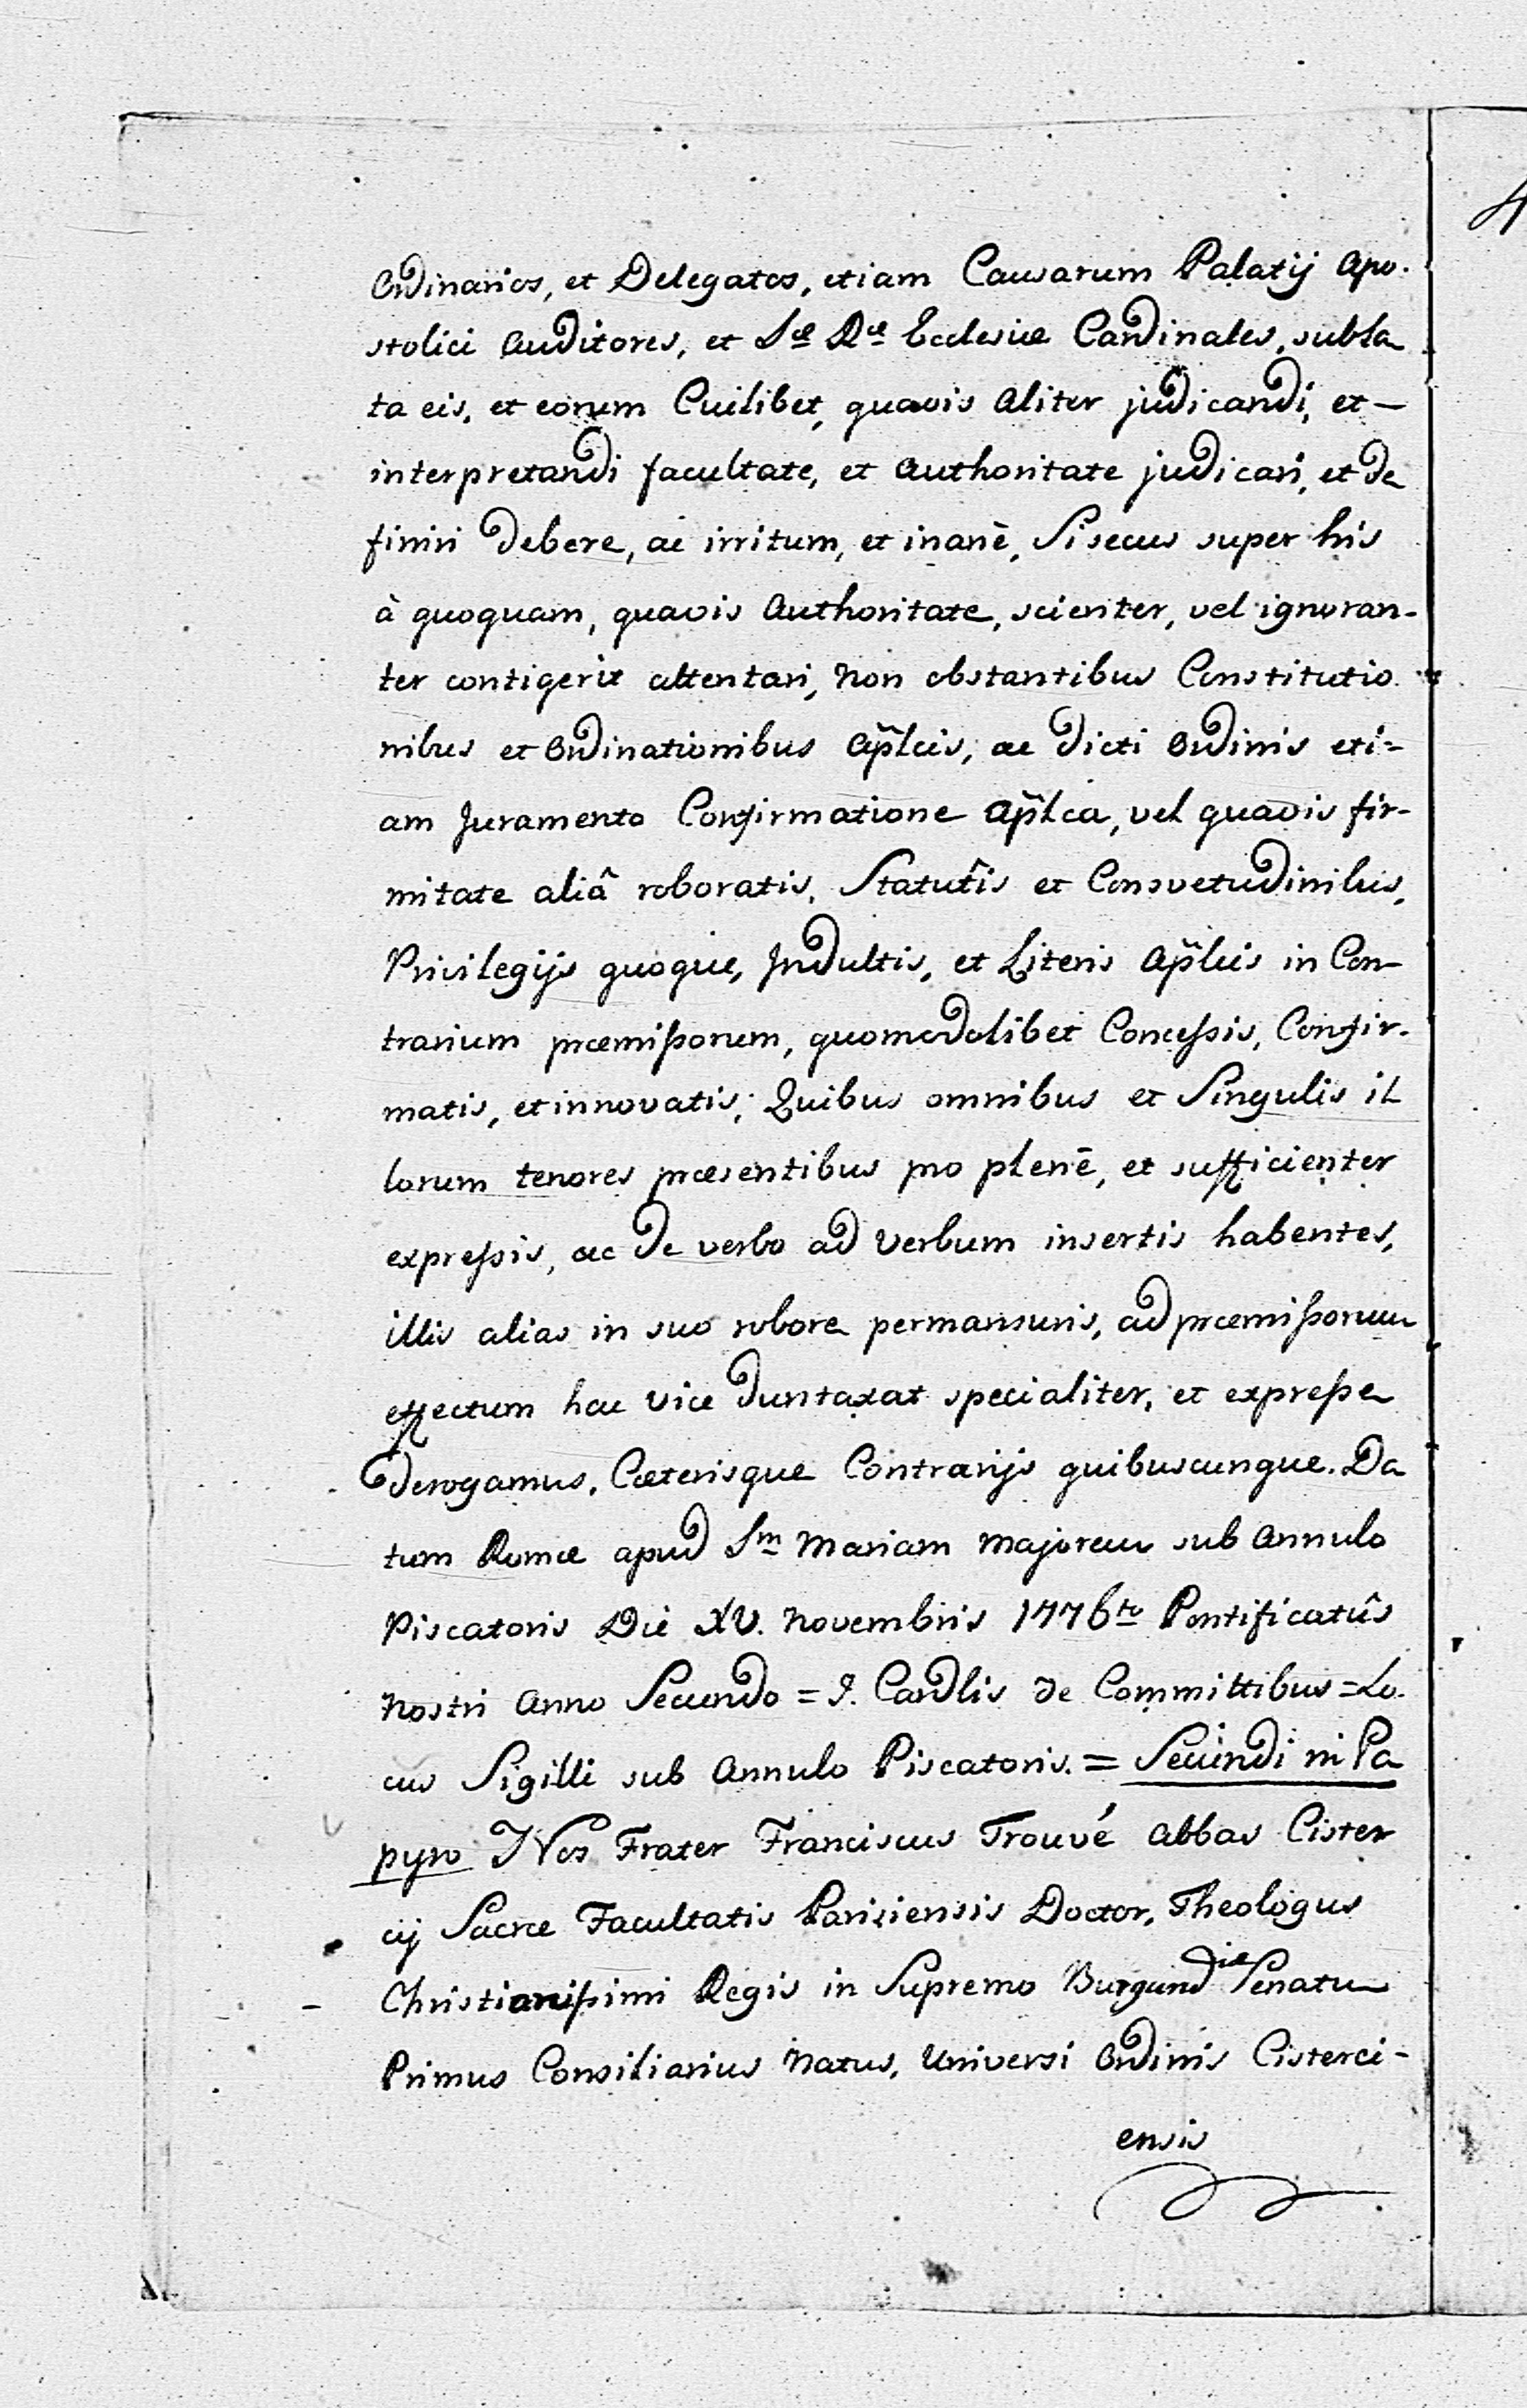 Ordinarios, et Delegatos, etiam Causarum Palatij Apo-
stolici Auditores, et Sæ Ræ Ecclesiæ Cardinales, subla
ta eis, et eorum Cuilibet, quavis Aliter judicandi, et —
interpretandi facultate, et Authoritate judicari, et de
finiri debere, ac irritum, et inanè, Si secus super his
à quoquam, quavis Authoritate, scienter, vel ignoran-
ter contigerit attentari, non obstantibus Constitutio
nibus et Ordinationibus Aplcis, ac dicti Ordinis eti=
am Juramento Confirmatione Aplca, vel quavis fir-
mitate aliâ roboratis, Statutîs et Consvetudinibus,
Privilegijs quoque, Indultis, et Literis Aplcis in Con-
trarium præmißorum, quomodolibet Conceßis, Confir-
matis, et innovatis; Quibus omnibus et Singulis il
lorum tenores præsentibus pro plenē, et sufficienter
expreßis, ac de verbo ad verbum insertis habentes,
illis alias in suo robore permansuris, ad præmißorum
effectum hac vice duntaxat specialiter, et expreße
derogamus, Cæterisque Contrarijs quibuscunque. Da
tum Romæ apud Sm Mariam Majorem sub Annulo
Piscatoris Die XV. Novembris 1776to Pontificatûs
Nostri Anno Secundo = I. Cardlis de Committibus = Lo-
cus Sigilli sub Annulo Piscatoris. = Secundi in Pa
pyro Nos Frater Franciscus Trouvé Abbas Cister
cij Sacræ Facultatis Parisiensis Doctor, Theologus
Christianißimi Regis in Supremo Burgundiæ Senatu
Primus Consiliarius Natus, Universi Ordinis Cisterci-
ensis
4